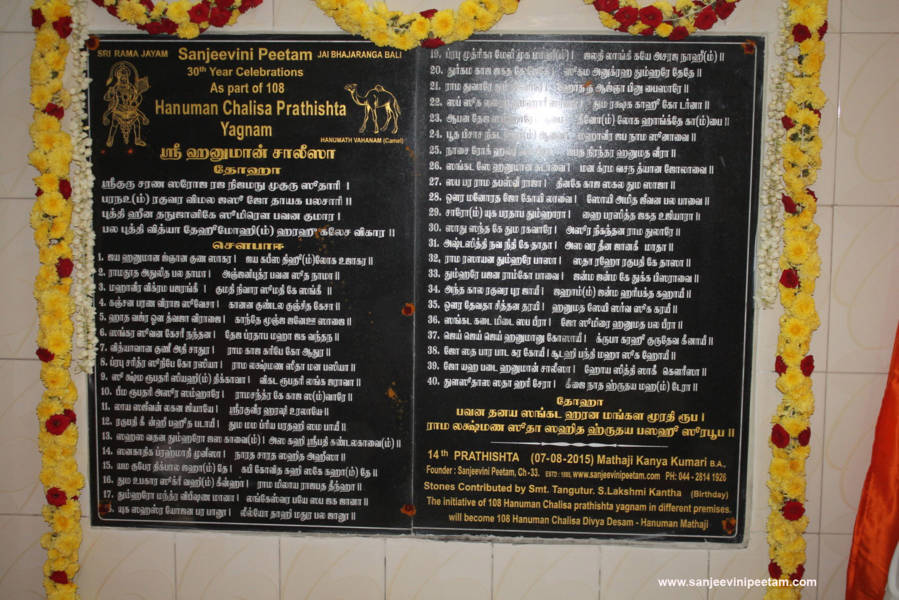 SRI RAMA JAYAM Sanjeevini Peetam JAI BHAJARANGA BALI
30th Year Celebrations
As part of 108
Hanuman Chalisa Prathishta
Yagnam
HANUMATH VAHANAM (Camel)
ஸ்ரீ ஹனுமான் சாலீஸா
தோஹா
ஸ்ரீகுரு சரண ஸரோஜ ரஜ நிஜமநு முகுரு ஸூதாரி |
பரநஉ(ம்) ரகுவர விமல ஜஸூ ஜோ தாயக பலசாரி ||
புத்தி ஹீன தநுஜானிகே ஸூமிரென பவன குமார |
பல புத்தி வித்யா தேஹீமோஹி(ம்) ஹரஹீ கலேச விகார ||
சௌபாஈ
1. ஜய ஹனுமான் ஞான குண ஸாகர | ஜய கபீஸ திஹீ(ம்)லோக உஜாகர ||
2. ராமதூத அதுலித பல தாமா | அஞ்ஜனிபுத்ர பவன ஸுத நாமா ||
3. மஹாவீர் விக்ரம பஜரங்கீ | குமதி நிவார ஸூமதி கே ஸங்கீ ||
4. கஞ்சன பரண விராஜ ஸுவேசா | கானன குண்டல குஞ்சித கேசா ||
5. ஹாத வஜ்ர ஔ த்வஜா விராஜை | காந்தே மூஞ்ஜ ஜனேஊ ஸாஜை ||
6. ஸங்கர ஸுவன கேசரீ நந்தன | தேஜ ப்ரதாப மஹா ஜக வந்தந ||
7. வித்யாவான குணீ அதி சாதுர | ராம காஜ கரிபே கோ ஆதுர ||
8. ப்ரபு சரித்ர ஸுநிபே கோ ரஸியா | ராம லக்ஷ்மண ஸீதா மன பஸியா ||
9. ஸூக்ஷ்ம ரூபதரி ஸியஹி(ம்) திக்காவா | விகட ரூபதரி லங்க ஜராவா ||
10. பீம ரூபதரி அஸுர ஸம்ஹாரே | ராமசந்த்ர கே காஜ ஸ(ம்)வாரே ||
11. லாய ஸஜீவன் லகன ஜியாயே | ஸ்ரீரகுவீர ஹரஷி உரலாயே ||
12. ரகுபதி கீன்ஹி பஹுத படாயீ | தும மம ப்ரிய பரதஹி ஸம பாயீ ||
13. ஸஹஸ வதன தும்ஹரோ ஜஸ காவை(ம்) | அஸ கஹி ஸ்ரீபதி கண்டலகாவை(ம்) ||
14. ஸனகாதிக ப்ரஹ்மாதி முனீஸா | நாரத சாரத ஸஹித அஹீஸா ||
15. யம குபேர திக்பால ஜஹா(ம்) தே | கபி கோவித கஹி ஸகே கஹா(ம்) தே ||
16. தும உபகார ஸுக்ரீவஹி(ம்) கீன்ஹா | ராம மிலாய ராஜபத தீந்ஹா ||
17. தும்ஹரோ மந்த்ர விபீஷண மானா | லங்கேஸ்வர பயே ஸப ஜக ஜானா ||
யுக ஸஹஸ்ர யோஜன பர பானூ | லீல்யோ தாஹி மதுர பல ஜானூ ||
19. ப்ரபு முத்ரிகா மேலி முக மாஹீ(ம்) | ஜலதி லாங்கி கயே அசரஜ நாஹீ(ம்) ||
20. துர்கம காஜ ஜகத கே | ஸுகம அனுக்ரஹ தும்ஹரே தேதே ||
21. ராம துவாரே | ஹோத ந ஆஜ்ஞா பினு பைஸாரே ||
22. ஸப ஸுக | தும ரக்ஷக காஹூ கோ டர்னா ||
23. ஆபன தேஜ | லோக ஹாங்க்தே கா(ம்)பை ||
24. பூத பிசாச | மஹாவீர் ஜப நாம ஸூனாவை ||
25. நாசை ரோக | ஜபத நிரந்தர ஹனுமத வீரா ||
26. ஸங்கட ஸே ஹனுமான | மன க்ரம வசந த்யான ஜோலாவை ||
27. ஸப பர ராம தபஸ்வீ ராஜா | தினகே காஜ ஸகல தும ஸாஜா ||
28. ஔர மனோரத ஜோ கோயி லாவை | ஸோயி அமித ஜீவன பல பாவை ||
29. சாரோ(ம்) யுக பரதாப தும்ஹாரா | ஹை பரஸித்த ஜகத உஜியாரா ||
30. ஸாது ஸந்த கே தும ரகவாரே | அஸுர நிகந்தன ராம துலாரே ||
31. அஷ்டஸித்தி நவ நிதி கே தாதா | அஸ வர தீன ஜானகீ மாதா ||
32. ராம ரஸாயன தும்ஹரே பாஸா | ஸதா ரஹோ ரகுபதி கே தாஸா ||
33. தும்ஹரே பஜன ராம்கோ பாவை | ஜன்ம ஜன்ம கே துக்க பிஸராவை ||
34. அந்த கால ரகுவர புர ஜாயீ | ஜஹாம்(ம்) ஜன்ம ஹரிபக்த கஹாயீ ||
35. ஔர தேவதா சித்தன தரயீ | ஹனுமத ஸேயி ஸர்வ ஸுக கரயீ ||
36. ஸங்கட கடை மிடை ஸப பீரா | ஜோ ஸுமிரை ஹனுமத பல பீரா ||
37. ஜெய் ஜெய் ஜெய் ஹனுமானு கோஸாயீ | க்ருபா கரஹீ குருதேவ கீ நாயீ ||
38. ஜோ ஸத பார பாட கர கோயீ | சூடஹி பந்தி மஹா ஸுக ஹோயீ ||
39. ஜோ யஹ படை ஹனுமான் சாலீஸா | ஹோய ஸித்தி ஸாகீ கௌரீஸா ||
40. துளஸீதாஸ ஸதா ஹரி சேரா | கீஜை நாத ஹ்ருதய மஹ(ம்) டேரா ||
தோஹா
பவன தனய ஸங்கட ஹரன மங்கள மூரதி ரூப |
ராம லக்ஷ்மண ஸீதா ஸஹித ஹ்ருதய பஸஹீ ஸுரபூப ||
14th PRATHISHTA (07-08-2015) Mathaji Kanya Kumari B.A.,
Founder : Sanjeevini Peetam, Ch - 33. ESTD : 1985, www.sanjeevinipeetam.com PH: 044 - 2814 1926
Stones Contributed by Smt. Tangutur. S.Lakshmi Kantha (Birthday)
The initiative of 108 Hanuman Chalisa prathishta yagnam in different premises.
will become 108 Hanuman Chalisa Divya Desam - Hanuman Mathaji
www.sanjeevinipeetam.com